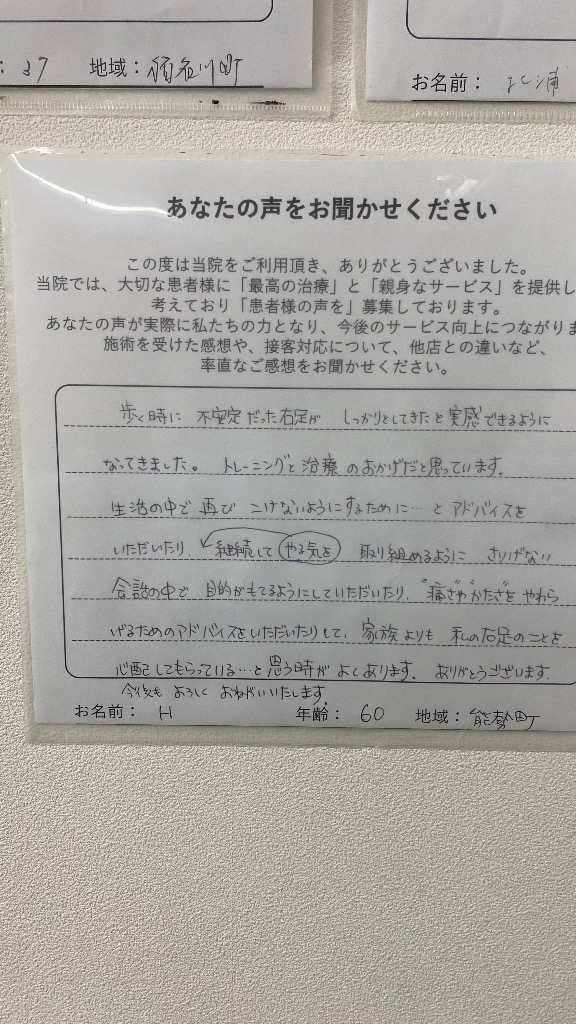 : 37 地域: 猪名川町
お名前:
あなたの声をお聞かせください
この度は当院をご利用頂き、ありがとうございました。
当院では、大切な患者様に「最高の治療」と「親身なサービス」を提供し
考えており「患者様の声を」募集しております。
あなたの声が実際に私たちの力となり、今後のサービス向上につながりま
施術を受けた感想や、接客対応について、他店との違いなど、
率直なご感想をお聞かせください。
歩く時に 不安定だった右足が しっかりとしてきたと実感できるように
なってきました。 トレーニングと治療のおかげだと思っています。
生活の中で再び こけないようにするために…とアドバイスを
いただいたり、継続して やる気を 取り組めるように さりげない
会話の中で 目的がもてるようにしていただいたり、"痛さや"かたさ"をやわら
げるためのアドバイスをいただいたりして、家族よりも 私の右足のことを
心配してもらっている…と思う時が よくあります。 ありがとうございます
今後も よろしく おねがいいたします。
お名前: H 年齢: 60 地域: 能勢町